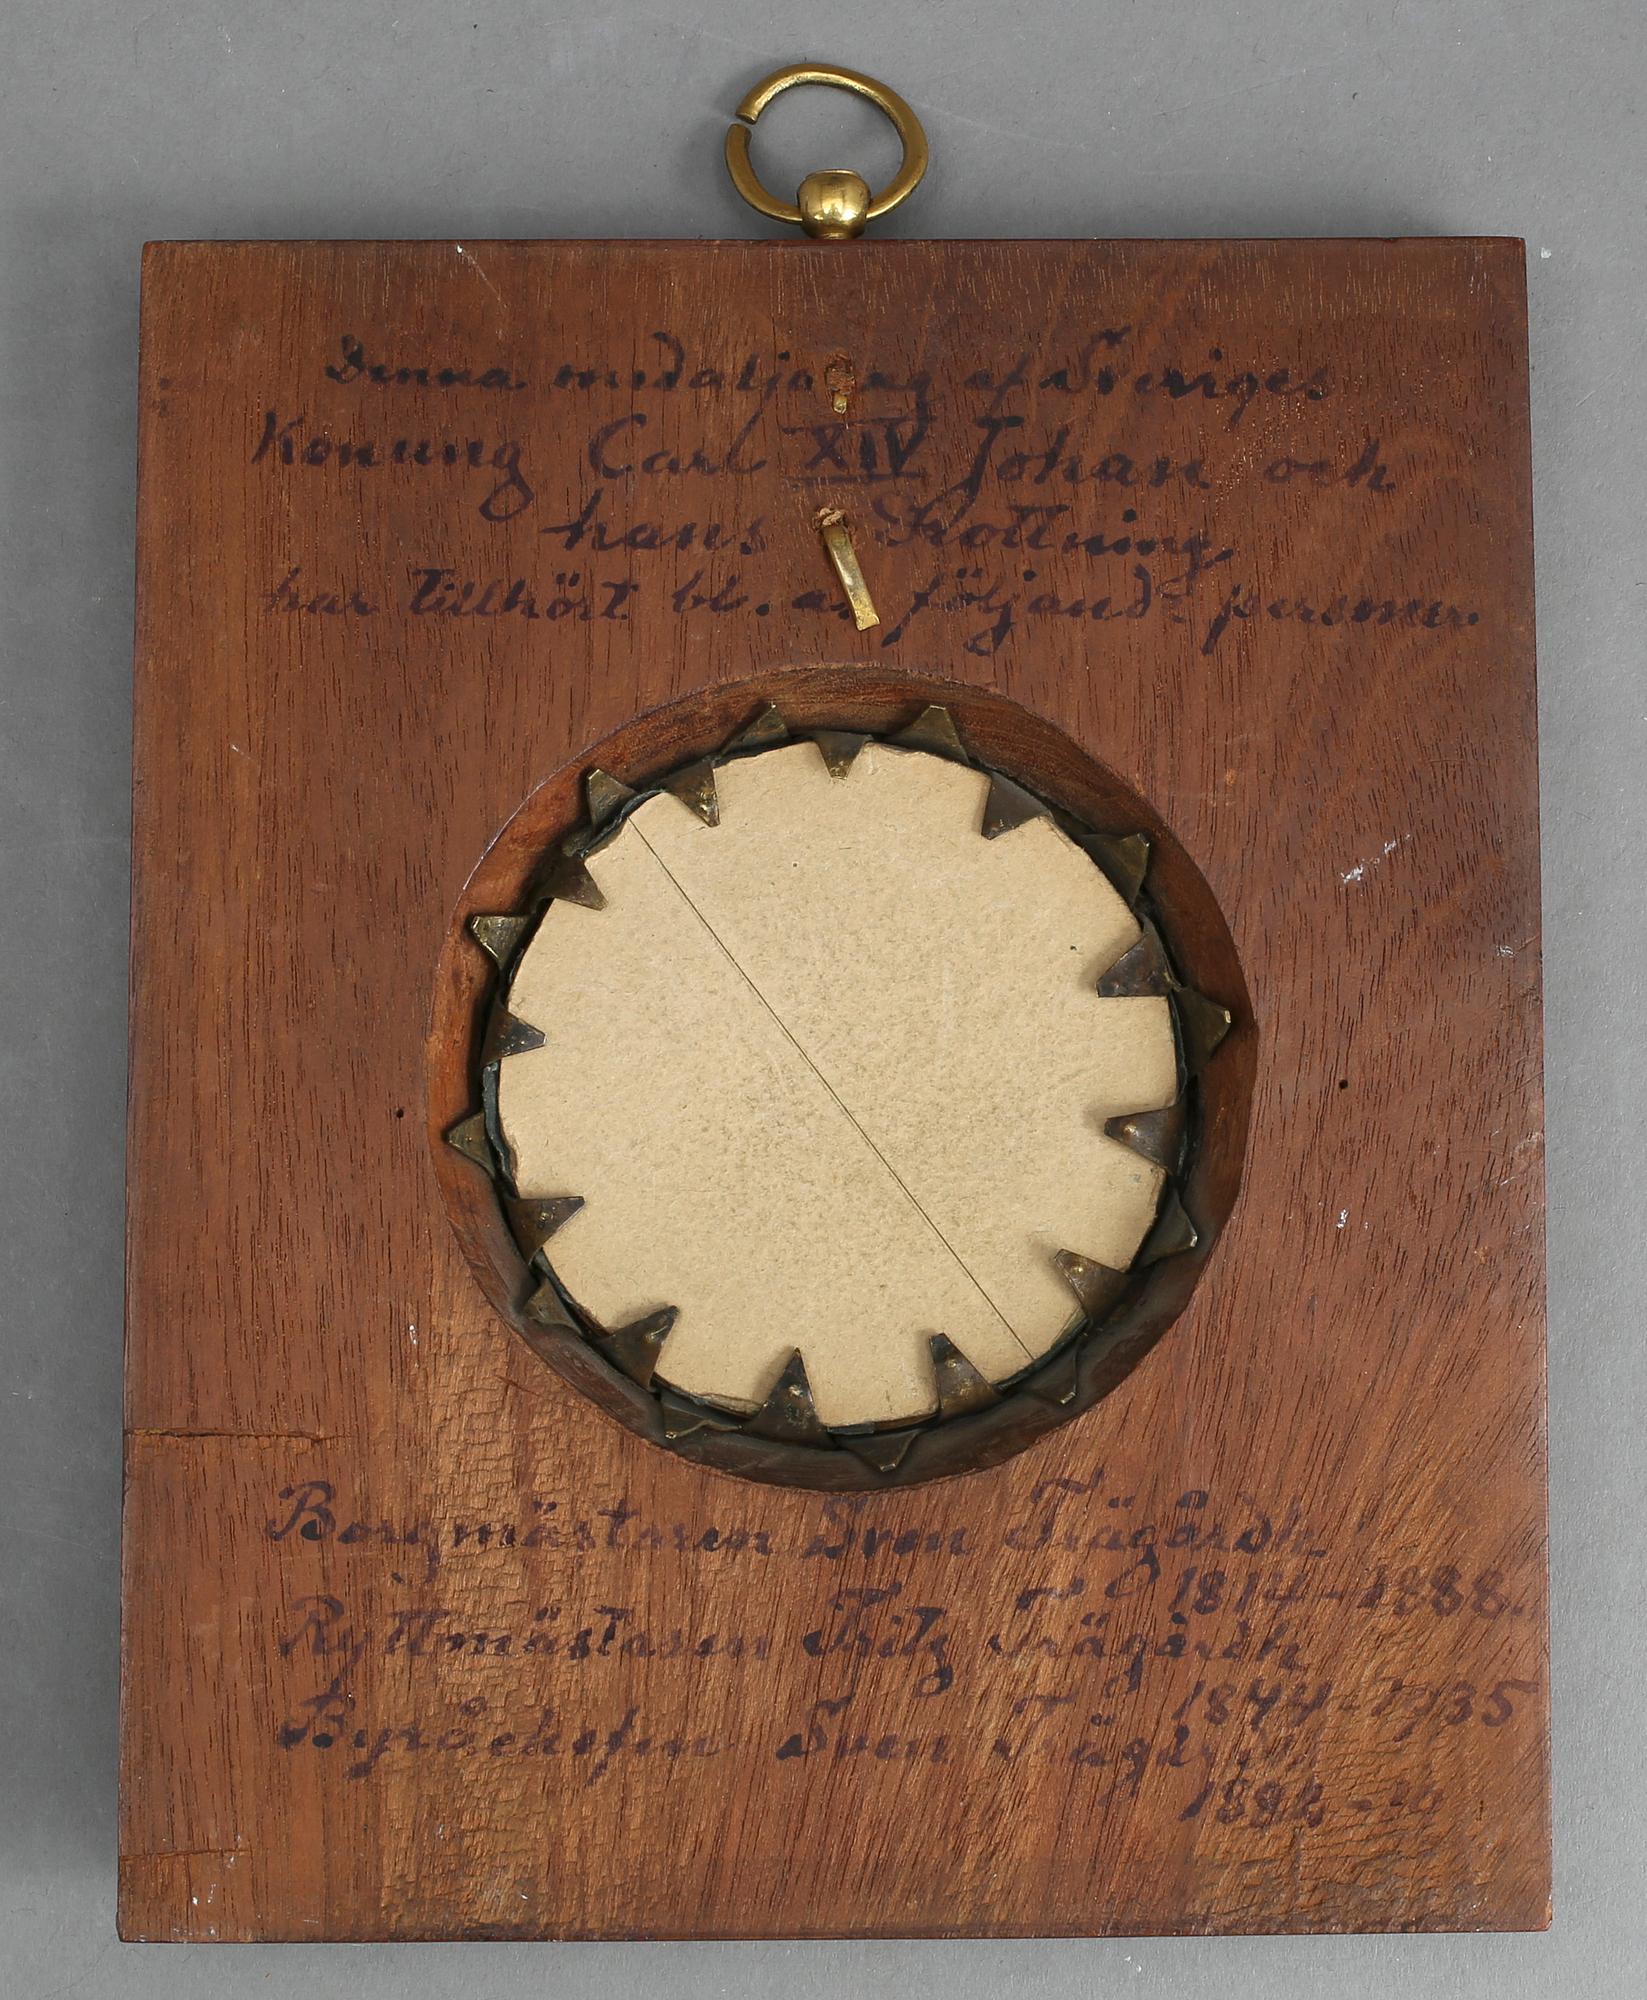 Denna medaljong af Sveriges
Konung Carl XIV Johan och
hans Drottning,
har tillhört bl. a. följande personer.
Borgmästaren Sven Trägårdh
1814-1888.
Ryttmästaren Fritz Trägårdh
1844-1935
Byråchefen Sven Trägårdh